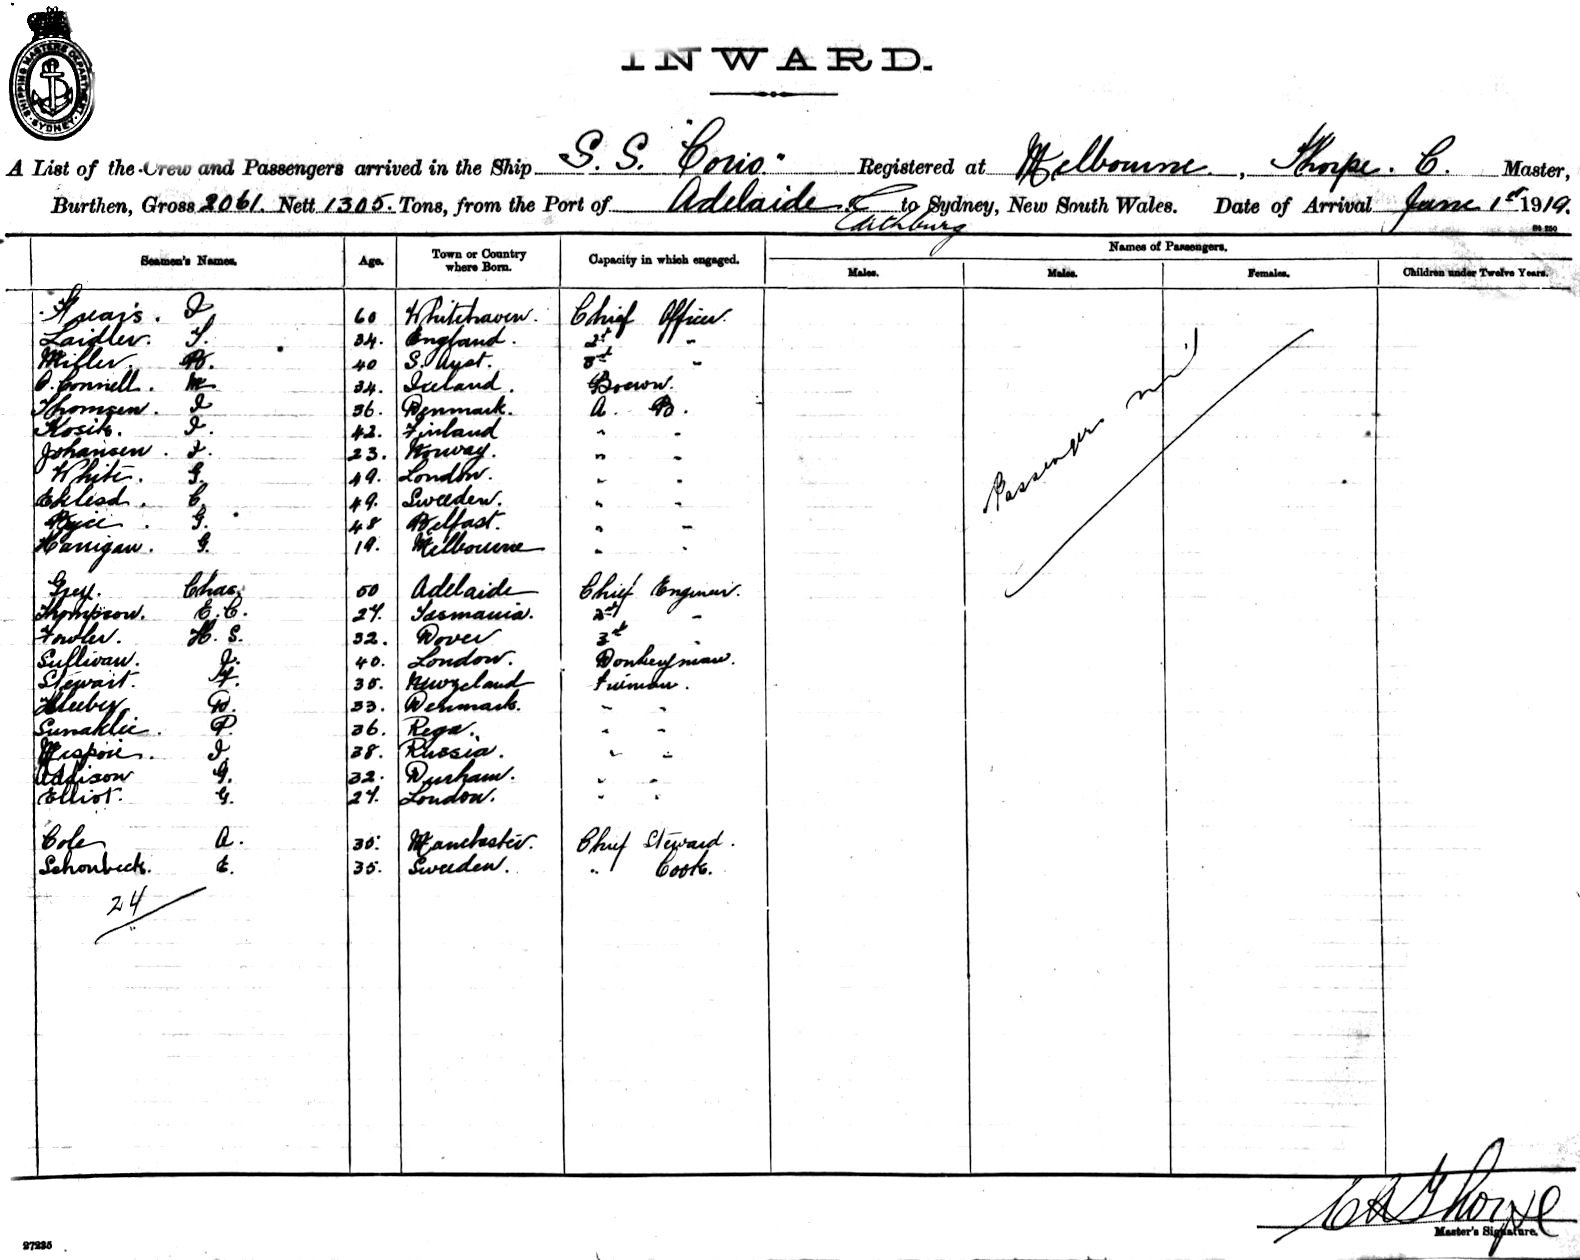 SHIPPING MASTERS DEPARTMENT SYDNEY
INWARD.
A List of the Crew and Passengers arrived in the Ship S. S. "Corio." Registered at Melbourne, Thorpe. C. Master,
Burthen, Gross 2061. Nett 1305. Tons, from the Port of Adelaide & Edithburg to Sydney, New South Wales. Date of Arrival June 1st 1919.
Seamen's Names. Age. Town or Country where Born. Capacity in which engaged. Names of Passengers.
Males. Males. Females. Children under Twelve Years.
60 Whitehaven. Chief Officer.
Laidler. T. 34. England. 2nd "
Miller. 40 S. Aust. 3rd "
O.Connell. M 34. Ireland. Boswn.
Thomsen. I 36. Denmark. A. B.
42. Finland " "
Johansen. I. 23. Norway. " "
White. G. 49. London. " "
C. 49. Sweden. " "
G. 48 Belfast. " "
Hannigan. G. 19. Melbourne " "
Passengers nil
Grey. Chas. 50 Adelaide Chief Engineer.
Thompson. E. C. 27. Tasmania. 2nd "
Fowler. H. S. 32. Dover 3rd "
Sullivan. J. 40. London. Donkeyman.
Stewart. 35. Newzeland Fireman.
33. Denmark. " "
P. 36. Rega. " "
I 38. Russia. " "
Addison G. 32. Durham. " "
Elliot. G. 27. London. " "
Cole A. 35. Manchester. Chief Steward.
Schonbeck. E. 35. Sweden. " Cook.
24
C A Thorpe
Master's Signature.
27235